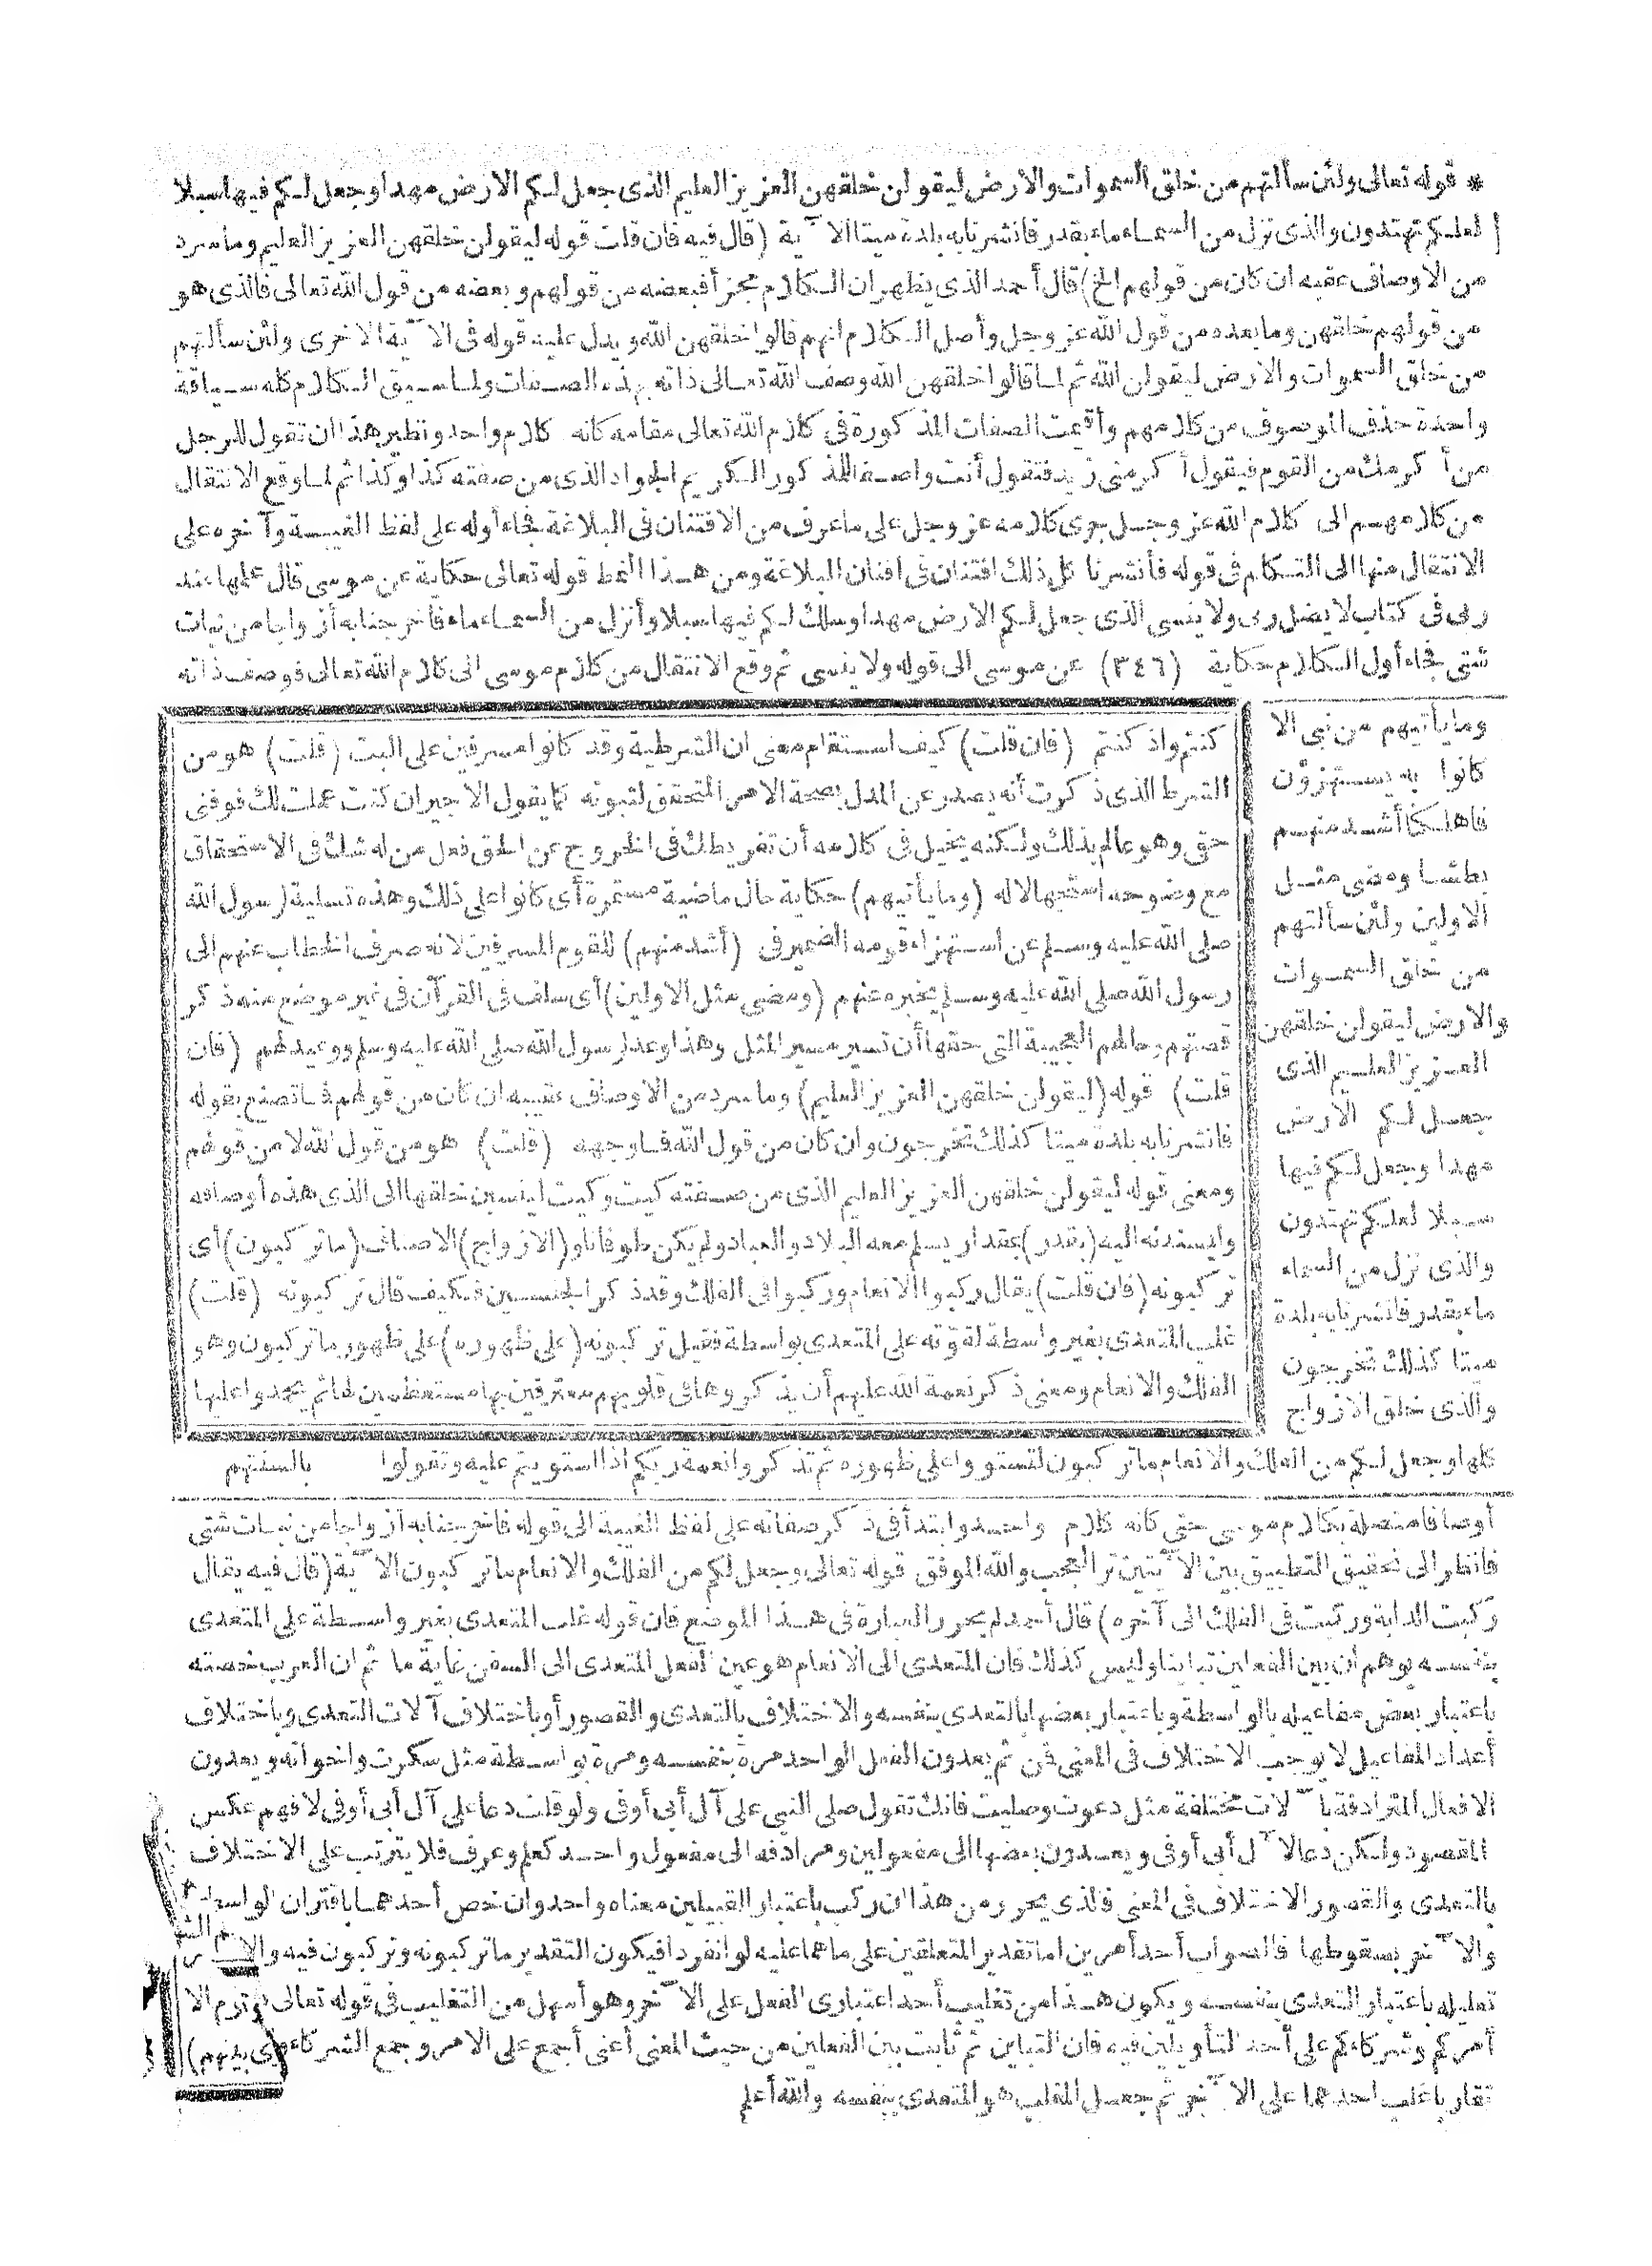 * قوله تعالى ولئن سألتهم من خلق السموات والارض ليقولن خلقهن العزيز العليم الذى جعل لكم الارض مهدا وجعل لكم فيها سبلا
لعلكم تهتدون والذى نزل من السماء ماء بقدر فانشرنا به بلدة ميتا الآية (قال فيه فان قلت قوله ليقولن خلقهن العزيز العليم وما سرد
من الاوصاف عقيبه ان كان من قولهم الخ) قال أحمد الذى يظهر ان الكلام مجزأ فبعضه من قولهم وبعضه من قول الله تعالى فالذى هو
من قولهم خلقهن وما بعده من قول الله عز وجل وأصل الكلام انهم قالوا خلقهن الله ويدل عليه قوله فى الآية الاخرى ولئن سألتهم
من خلق السموات والارض ليقولن الله ثم لما قالوا خلقهن الله وصف الله تعالى ذاته بهذه الصفات ولما سيق الكلام كله سياقة
واحدة حذف الموصوف من كلامهم وأقيمت الصفات المذكورة فى كلام الله تعالى مقامه كانه كلام واحد ونظير هذا ان تقول للرجل
من أكرمك من القوم فيقول أكرمنى زيد فتقول أنت واصفا للمذكور الكريم الجواد الذى من صفته كذا وكذا ثم لما وقع الانتقال
من كلامهم الى كلام الله عز وجل جرى كلامه عز وجل على ما عرف من الافتنان فى البلاغة فجاء أوله على لفظ الغيبة وآخره على
الانتقال منها الى التكلم فى قوله فأنشرنا كل ذلك افتنان فى افنان البلاغة ومن هذا النمط قوله تعالى حكاية عن موسى قال علمها عند
ربى فى كتاب لا يضل ربى ولا ينسى الذى جعل لكم الارض مهدا وسلك لكم فيها سبلا وأنزل من السماء ماء فاخرجنا به أزواجا من نبات
شتى فجاء أول الكلام حكاية (٣٤٦) عن موسى الى قوله ولا ينسى ثم وقع الانتقال من كلام موسى الى كلام الله تعالى فوصف ذاته
وما يأتيهم من نبى الا
كانوا به يستهزؤن
فاهلكنا أشد منهم
بطشا ومضى مثل
الاولين ولئن سألتهم
من خلق السموات
والارض ليقولن خلقهن
العزيز العليم الذى
جعل لكم الارض
مهدا وجعل لكم فيها
سبلا لعلكم تهتدون
والذى نزل من السماء
ماء بقدر فانشرنا به بلدة
ميتا كذلك تخرجون
والذى خلق الازواج
كنتم واذ كنتم (فان قلت) كيف استقام معنى ان الشرطية وقد كانوا مسرفين على البت (قلت) هو من
الشرط الذى ذكرت أنه يصدر عن المدل بصحة الامر المتحقق لثبوته كما يقول الاجير ان كنت عملت لك فوفنى
حقى وهو عالم بذلك ولكنه يخيل فى كلامه أن تفريطك فى الخروج عن الحق فعل من له شك فى الاستحقاق
مع وضوحه استجهالا له (وما يأتيهم) حكاية حال ماضية مستمرة أى كانوا على ذلك وهذه تسلية لرسول الله
صلى الله عليه وسلم عن استهزاء قومه الضمير فى (أشد منهم) للقوم المسرفين لانه صرف الخطاب عنهم الى
رسول الله صلى الله عليه وسلم يخبره عنهم (ومضى مثل الاولين) أى سلف فى القرآن فى غير موضع منه ذكر
قصتهم وحالهم العجيبة التى حقها أن تسير مسير المثل وهذا وعد لرسول الله صلى الله عليه وسلم ووعيد لهم (فان
قلت) قوله (ليقولن خلقهن العزيز العليم) وما سرد من الاوصاف عقيبه ان كان من قولهم فما تصنع بقوله
فانشرنا به بلدة ميتا كذلك تخرجون وان كان من قول الله فما وجهه (قلت) هو من قول الله لا من قولهم
ومعنى قوله ليقولن خلقهن العزيز العليم الذى من صفته كيت وكيت لينسبن خلقها الى الذى هذه أوصافه
وليسندنه اليه (بقدر) بمقدار يسلم معه البلاد والعباد ولم يكن طوفانا و(الازواج) الاصناف (ما تركبون) أى
تركبونه (فان قلت) يقال ركبوا الانعام وركبوا فى الفلك وقد ذكر الجنسين فكيف قال تركبونه (قلت)
غلب المتعدى بغير واسطة لقوته على المتعدى بواسطة فقيل تركبونه (على ظهوره) على ظهور ما تركبون وهو
الفلك والانعام ومعنى ذكر نعمة الله عليهم أن يذكروها فى قلوبهم معترفين بها مستعظمين لها ثم يحمدوا عليها
كلها وجعل لكم من الفلك والانعام ما تركبون لتستووا على ظهوره ثم تذكروا نعمة ربكم اذا استويتم عليه وتقولوا بالسنتهم
أوصافا متصلة بكلام موسى حتى كانه كلام واحد وابتدأ فى ذكر صفاته على لفظ الغيبة الى قوله فاخرجنا به أزواجا من نبات شتى
فانظر الى تحقيق التطبيق بين الآيتين تر العجب والله الموفق قوله تعالى وجعل لكم من الفلك والانعام ما تركبون الآية (قال فيه يقال
ركبت الدابة وركبت فى الفلك الى آخره) قال أحمد لم يحرر العبارة فى هذا الموضع فان قوله غلب المتعدى بغير واسطة على المتعدى
بنفسه يوهم أن بين الفعلين تباينا وليس كذلك فان المتعدى الى الانعام هو عين الفعل المتعدى الى السفن غاية ما ثم ان العرب خصته
باعتبار بعض مفاعيله بالواسطة وباعتبار بعضها بالتعدى بنفسه والاختلاف بالتعدى والقصور أو باختلاف آلات التعدى وباختلاف
أعداد المفاعيل لا يوجب الاختلاف فى المعنى فمن ثم يعدون الفعل الواحد مرة بنفسه ومرة بواسطة مثل سكرت واخواته ويعدون
الافعال المترادفة بآلات مختلفة مثل دعوت وصليت فانك تقول صلى النبى على آل أبى أوفى ولو قلت دعا على آل أبى أوفى لافهم عكس
المقصود ولكن دعا لآل أبى أوفى ويعدون بعضها الى مفعولين ومرادفه الى مفعول واحد كعلم وعرف فلا يترتب على الاختلاف
بالتعدى والقصور الاختلاف فى المعنى فالذى يحرر من هذا ان ركب باعتبار القبيلين معناه واحد وان خص أحدهما باقتران الواسطة
والآخر بسقوطها فالصواب أحد أمرين اما تقدير المتعلقين على ما هما عليه لو انفردا فيكون التقدير ما تركبونه وتركبون فيه
تعليله باعتبار التعدى بنفسه ويكون هذا من تغليب أحد اعتبارى الفعل على الآخر وهو أسهل من التغليب فى قوله تعالى
أمركم وشركاءكم على أحد التأويلين فيه فان التباين ثم ثابت بين الفعلين من حيث المعنى أعنى أجمع على الامر وجمع الشركاء
تقاربا غلب احدهما على الآخر ثم جعل المغلب هو المتعدى بنفسه والله أعلم